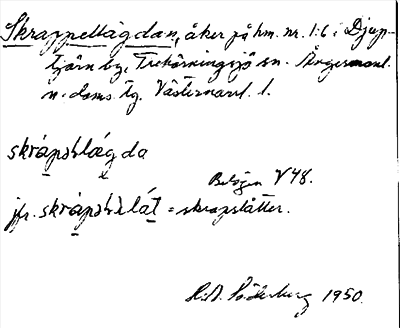 Skrappellägdan, åker på hm. nr. 1:6 i Djup-
tjärn by, Trehörningsjö sn. Ångermanl.
n. doms. tg. Västernorrl. l.
skrápəlæ̀gda
Belägen V 48.
jfr. skrápəslát = skrapslåtter.
H. Söderberg 1950.